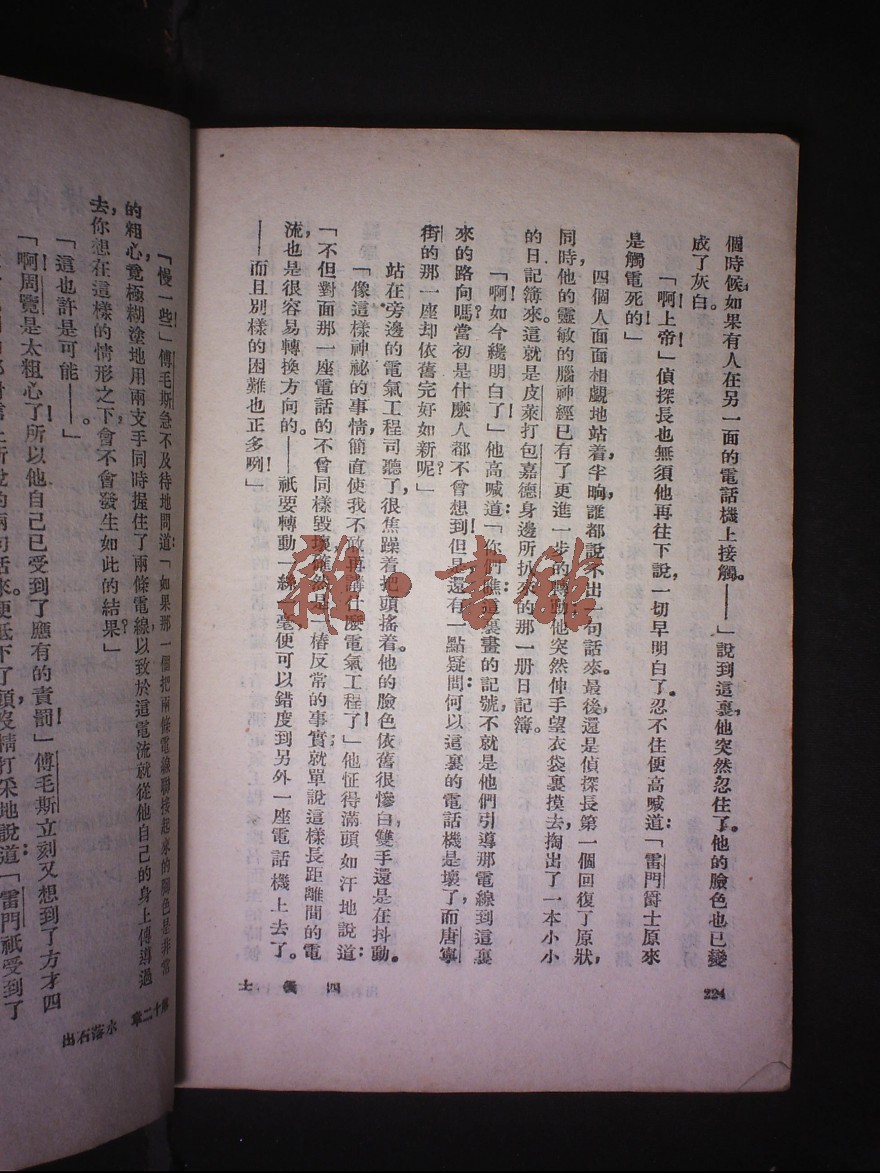 個時候,如果有人在另一面的電話機上接觸。——」說到這裏,他突然忍住了。他的臉色也已變
成了灰白。
「啊!上帝!」偵探長也無須他再往下說,一切早明白了。忍不住便高喊道:「雷門爵士原來
是觸電死的!」
四個人面面相覷地站着,半晌,誰都說不出一句話來。最後,還是偵探長第一個回復了原狀,
同時,他的靈敏的腦神經已有了更進一步的轉動。他突然伸手望衣袋裏摸去,掏出了一本小小
的日記簿來。這就是皮萊打包嘉德身邊所扒來的那一册日記簿。
「啊!如今纔明白了!」他高喊道:「你們瞧這裏畫的記號不就是他們引導那電線到這裏
來的路向嗎?當初是什麼人都不曾想到!但是還有一點疑問:何以這裏的電話機是壞了,而唐寧
街的那一座却依舊完好如新呢?」
站在旁邊的電氣工程司聽了,很焦躁着把頭搖着。他的臉色依舊很慘白,雙手還是在抖動。
「像這樣神祕的事情,簡直使我不敢再講什麼電氣工程了!」他怔得滿頭如汗地說道:
「不但對面那一座電話的不曾同樣毀壞,確然是一樁反常的事實;就單說這樣長距離間的電
流,也是很容易轉換方向的。——祇要轉動一絲一毫,便可以錯度到另外一座電話機上去了。
——而且別樣的困難也正多咧!」
四俠士
224
「慢一些!」傅毛斯急不及待地問道:「如果那一個把兩條電線聯接起來的脚色是非常
的粗心,竟極糊塗地用兩支手同時握住了兩條電線,以致於這電流就從他自己的身上傳過
去,你想在這樣的情形之下,會不會發生如此的結果?」
「這也許是可能——」
「啊!周覽是太粗心了!所以他自己已受到了應有的責罰!」傅毛斯立刻又想到了方才四
兩句話來。便低下了頭,沒精打采地說道:「雷門祇受到了
第十二章 水落石出
雜·書館